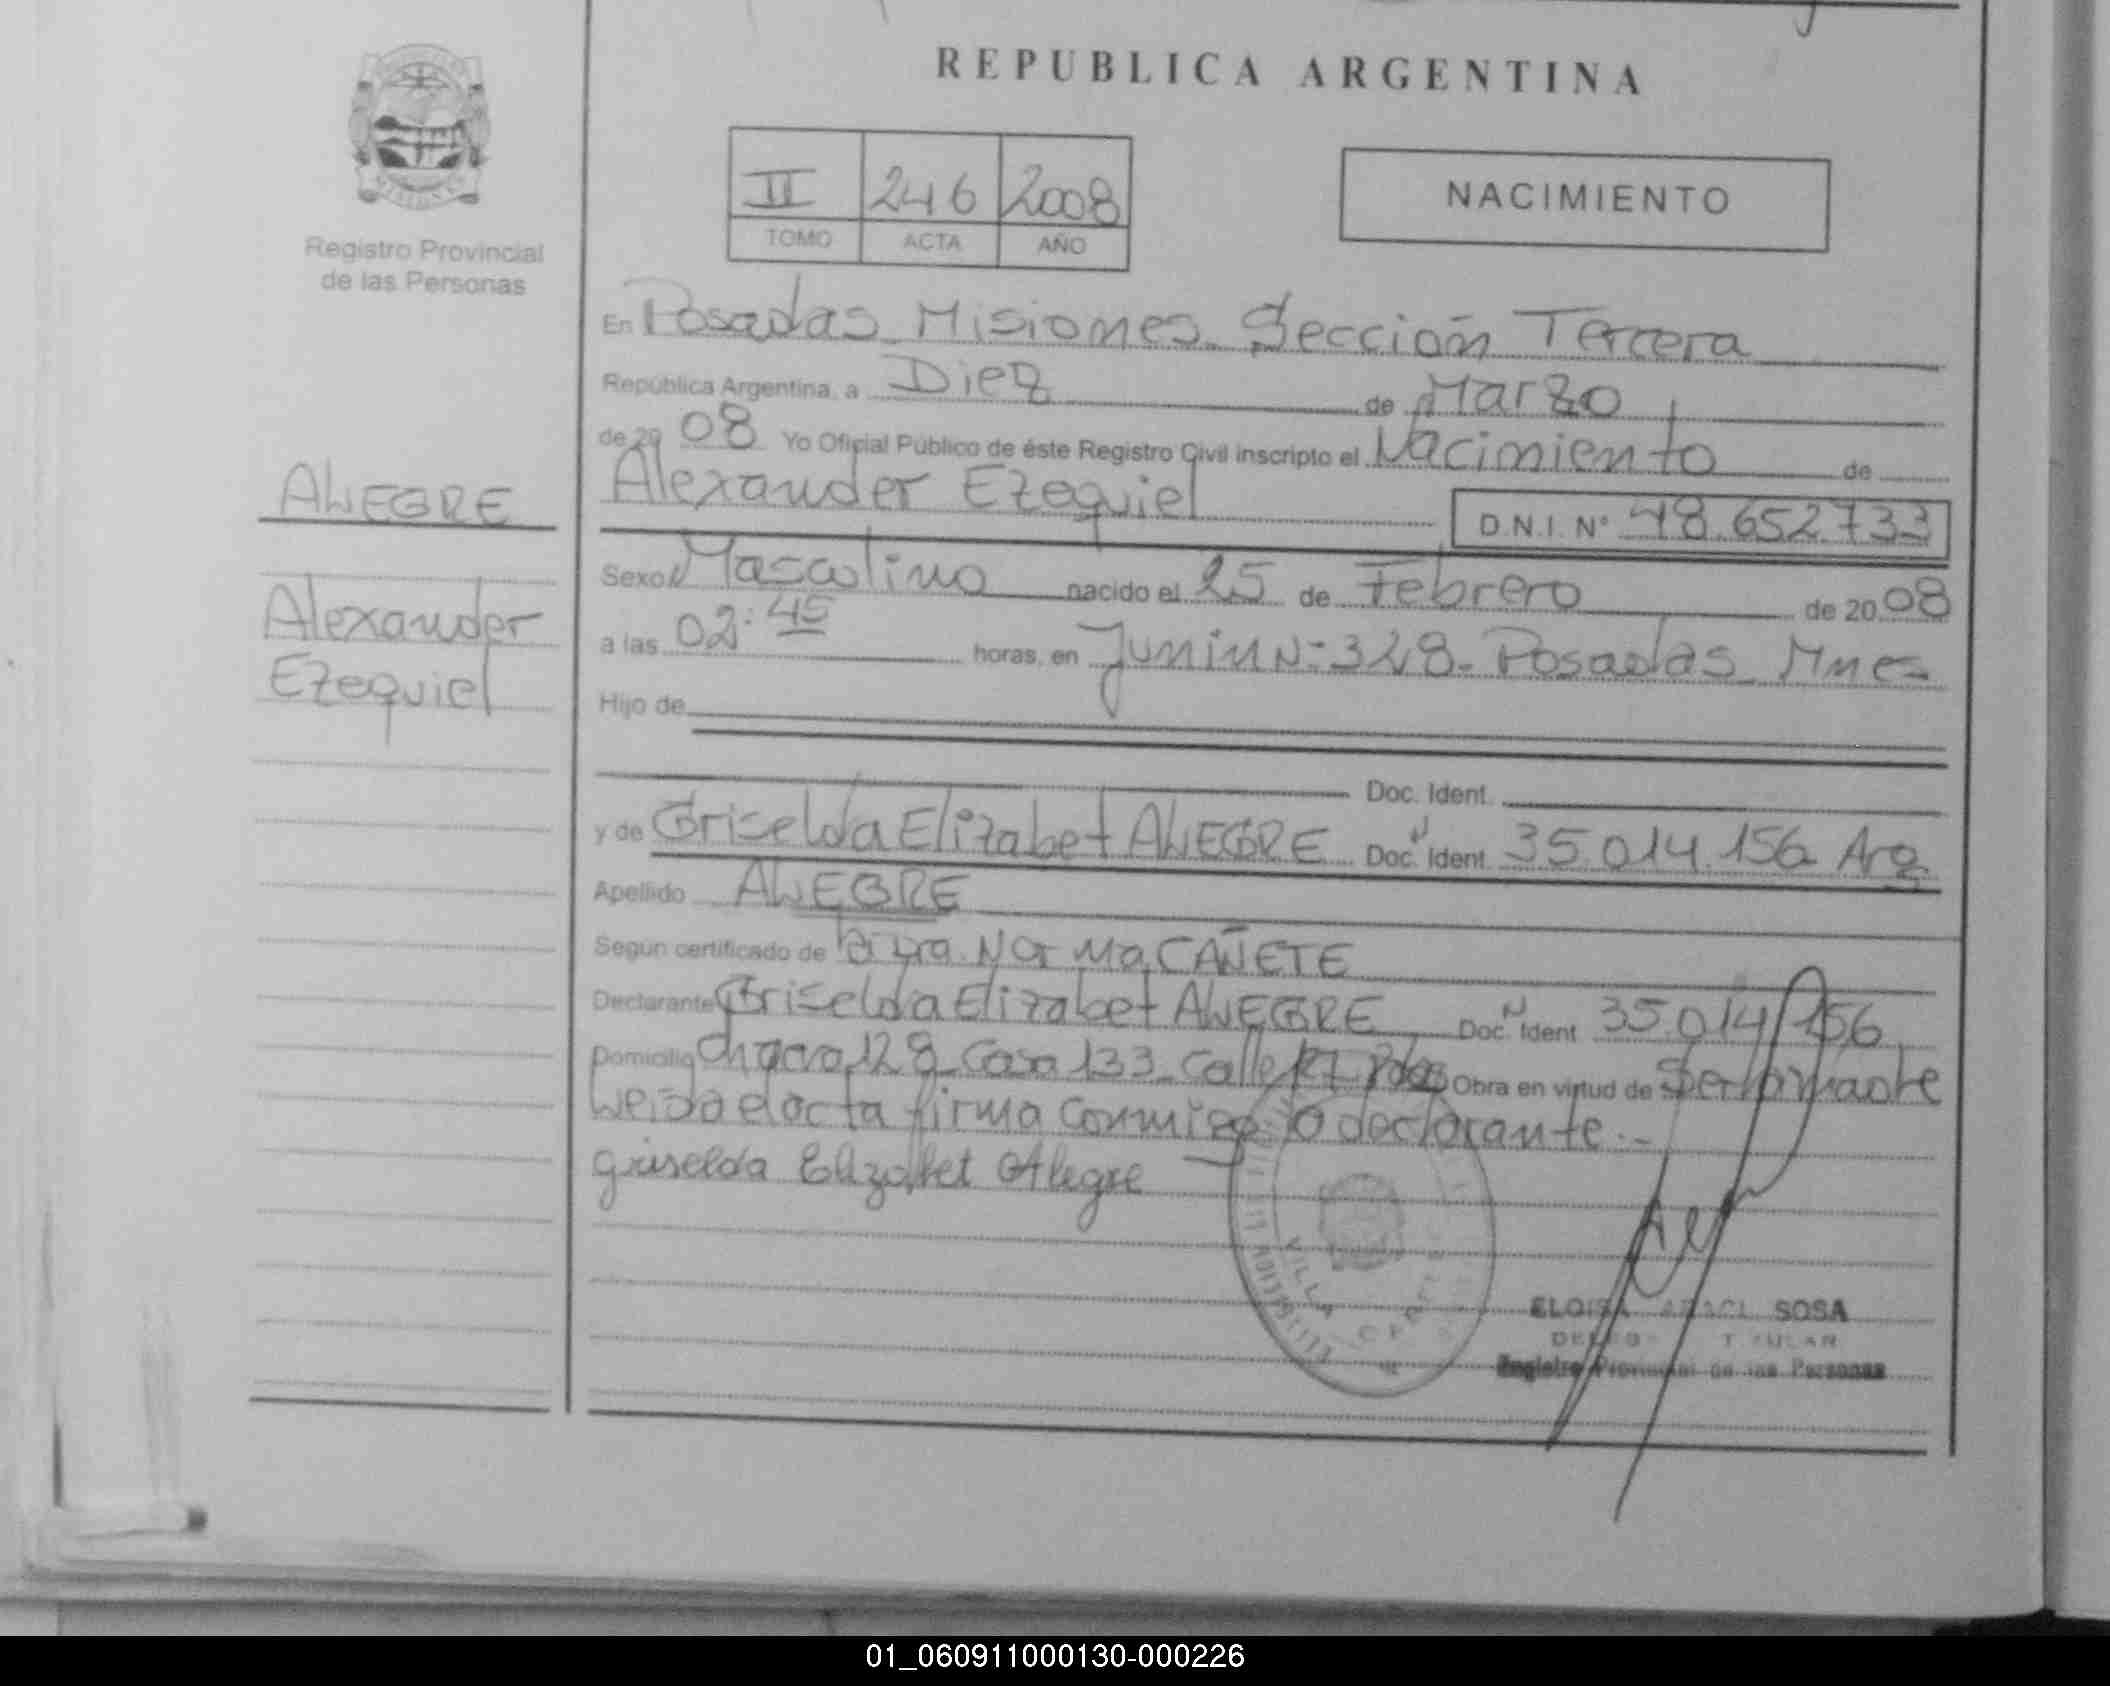 REPUBLICA ARGENTINA
II 246 2008
TOMO ACTA AÑO
NACIMIENTO
Registro Provincial
de las Personas
En Posadas Misiones Sección Tercera
República Argentina, a Diez de Marzo
de 20 08 Yo Oficial Público de éste Registro Civil inscripto el Nacimiento de
Alexander Ezequiel D.N.I. N° 48.652733
ALEGRE
Alexander
Ezequiel
Sexo Masculino nacido el 25 de Febrero de 20 08
a las 02:45 horas, en Junin N: 328- Posadas Mnes
Hijo de
Doc. Ident.
y de Griselda Elizabet ALEGRE Doc. Ident. 35.014.156 Arg
Apellido ALEGRE
Según certificado de Norma CAÑETE
Declarante Griselda Elizabet ALEGRE Doc. Ident. 35.014.156
Domicilio Chacra 128 Casa 133 Calle Obra en virtud de Ser la madre
Leida el acta firma conmigo la declarante.-
Griselda Elizabet Alegre
VILLA
ELOISA SOSA
TITULAR
Registro Provincial de las Personas
01_060911000130-000226